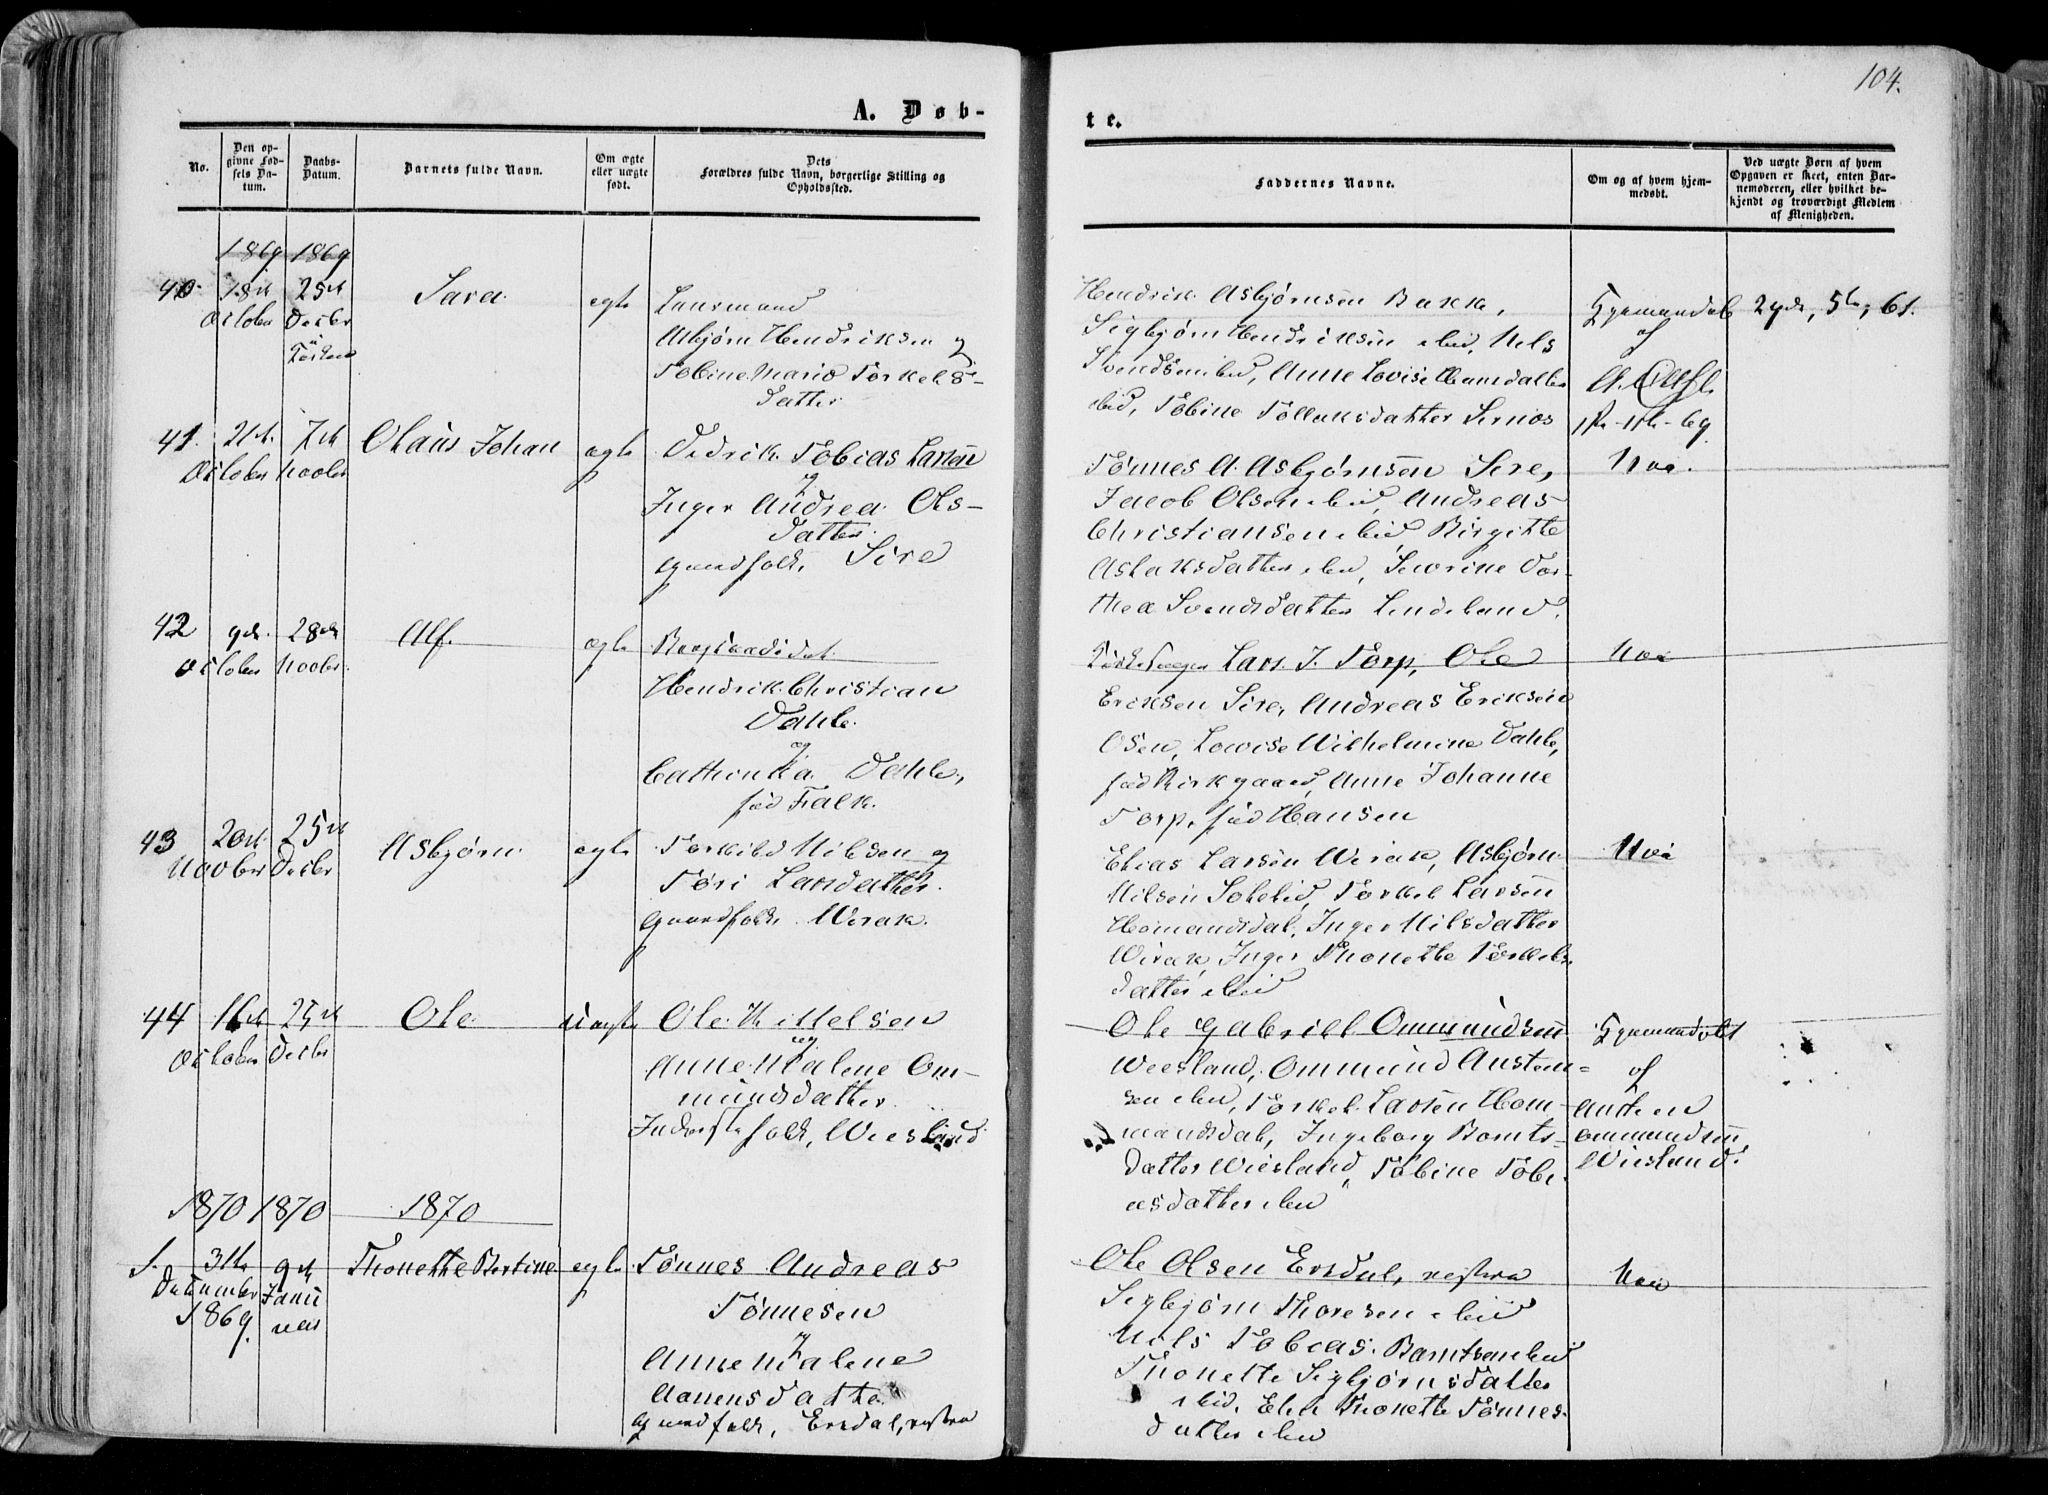 104.
A. Døb-
te.
No.
Den op-
givne Fød-
sels Da-
tum.
Daabs-
Datum.
Barnets fulde Navn.
Om ægte
eller uægte
født.
Dets
Forældres fulde Navn, borgerlige Stilling og
Opholdssted.
Faddernes Navne.
Om og af hvem hjem-
medøbt.
Ved uægte Børn af hvem
Opgaven er skeet, enten Bar-
nemoderen, eller hvilket be-
kjendt og troværdigt Medlem
af Menigheden.
1869 1869
40 18de October
25de Decbr
i Kirken
Sara
egte
Lensmand
Asbjørn Hendriksen og
Tobine Marie Torkels-
datter
Hendrik Asbjørnsen Bakke,
Sigbjørn Hendriksen ibid, Nils
Svendsen ibid, Anne Lovise Hansdatter
ibid, Tobine Tollaksdatter Sirnæs
Hjemmedøbt
af
41. 21de October
7de Novbr
Olaus Johan
egte
Didrik Tobias Larsen
og
Inger Andrea Ols-
datter
gaardfolk, Sire
Tønnes A. Asbjørnsen Sire,
Jacob Olsen ibid, Andreas
Christiansen ibid, Birgitte
Aslaksdatter ibid, Severine Dor-
thea Svendsdatter Lindeland.
Nei.
42 9de October
28de Novbr.
Alf.
egte
Hendrik Christian
Dahle.
og
Cathinka Dahle,
fød Falk.
Kirkesanger Lars J. Torp, Ole
Eriksen Sire, Andreas Eriksen
Osen, Lovise Wilhelmine Dahle,
fød Kirkgaard, Anne Johanne
Torp, fød Hansen
Nei
43 20de Novber
25de Decbr
Asbjørn
egte
Torkild Nilsen og
Tøri Larsdatter.
gaardfolk Wirak.
Elias Larsen Wirak, Asbjørn
Nilsen Solelid, Torkel Larsen
Homandsdal, Inger Nilsdatter
Wirak, Inger Thonette Torkels-
datter ibid
Nei
44 16de October
25de Decbr
Ole
uægte
Ole Kittelsen
og
Anne Malene Om-
mundsdatter
Inderstefolk, Wiesland
Ole Gabriel Ommundsen
Wiesland, Ommund Austen-
sen ibid, Torkel Larsen Hom-
mandsdal, Ingeborg Bernts-
datter Wiesland, Tobine Tobi-
asdatter ibid
Hjemmedøbt
af
Austen
Ommundsen,
Wiesland.
1870 1870 1870
1. 31te
December
1869.
9de
Janu
uar
Thonette Bertine
egte
Tønnes Andreas
Tønnesen
og
Anne Malene
Aanensdatter
gaardfolk, Ersdal, vestra
Ole Olsen Ersdal, vestra
Sigbjørn Thoresen ibid
Nils Tobias Berntsen ibid
Thonette Sigbjørnsdatter
ibid, Elen Thonette Tønnes-
datter ibid
Nei